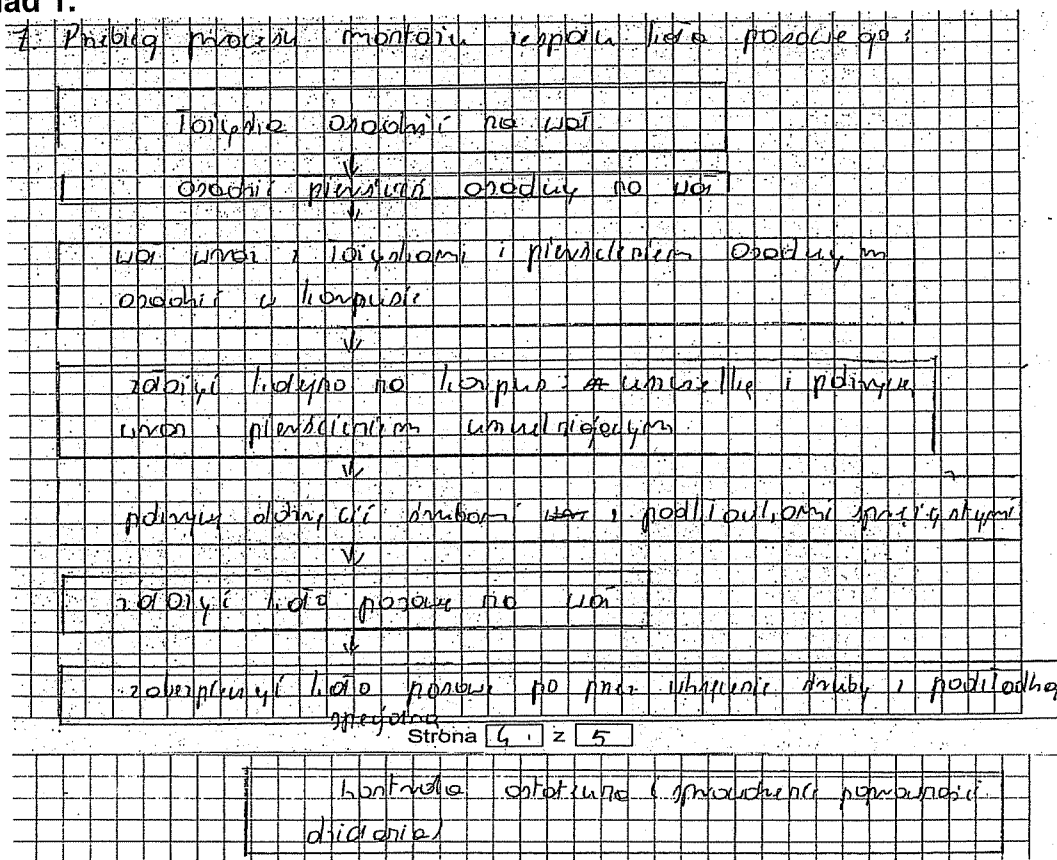 ład 1.
7. Przebieg procesu montażu zespołu koła pasowego:
Łożyska osadzić na wał
osadzić pierścień osadczy na wał
wał wraz z łożyskami i pierścieniem osadczym
osadzić w korpusie
założyć kołyno na korpus: uszczelkę i pokrywę
wraz z pierścieniem uszczelniającym
pokrywę dokręcić śrubami z podkładkami sprężystymi
założyć koło pasowe na wał
zabezpieczyć koło pasowe po przez wkręcenie śruby z podkładką
specjalną
Strona 4 z 5
kontrola ostateczna (sprawdzenie poprawności
działania)